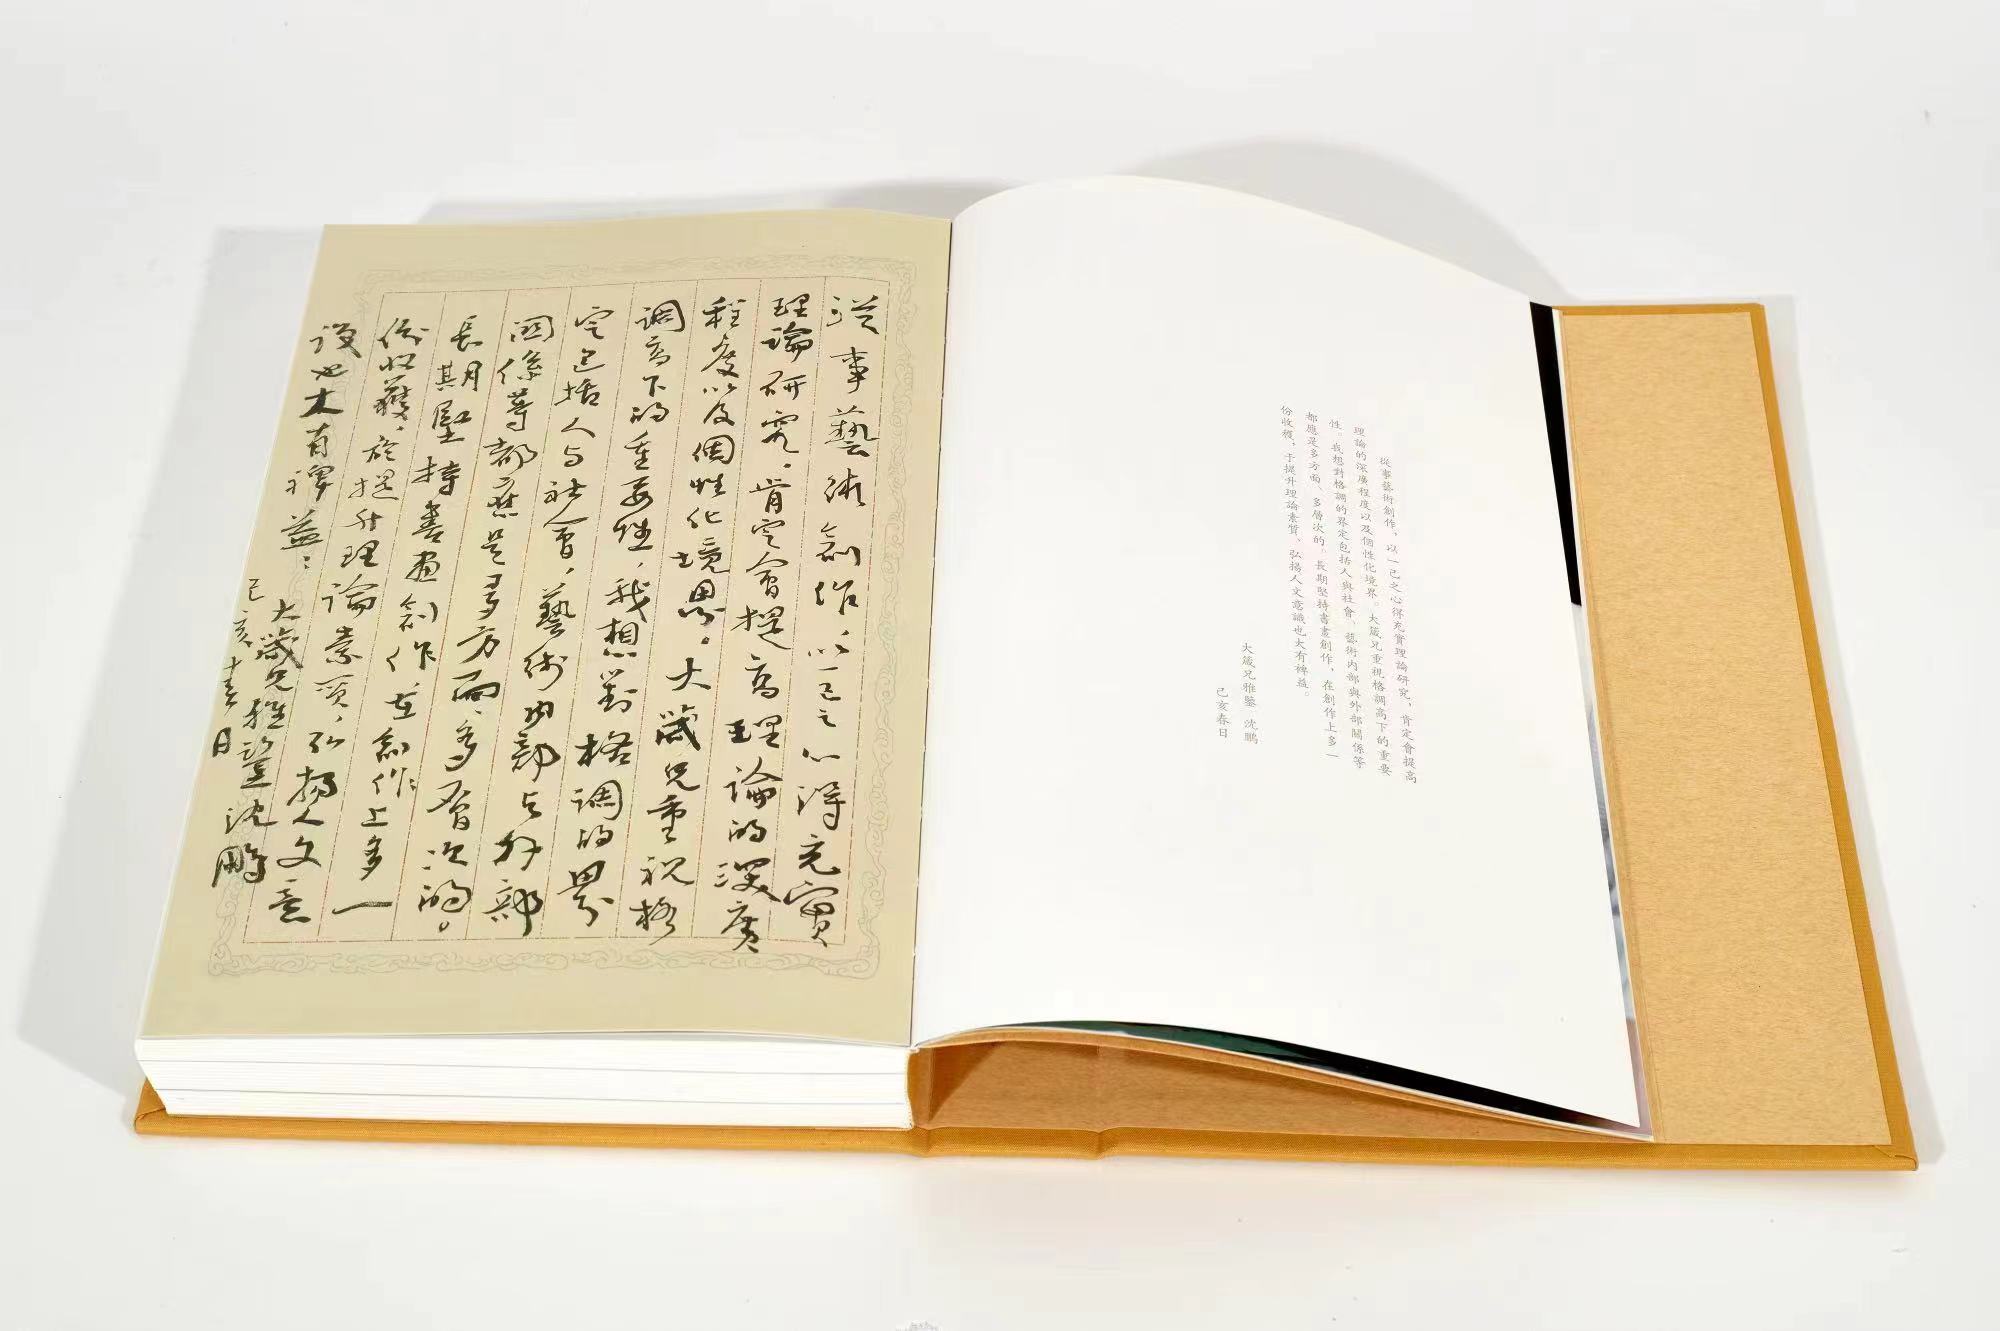 從事藝術創作，以一己之心得充實理論研究，肯定會提高
理論的深廣程度以及個性化境界。大箴兄重視格調高下的重要
性。我想對格調的界定包括人與社會、藝術内部與外部關係等
都應是多方面、多層次的。長期堅持書畫創作，在創作上多一
份收穫，于提升理論素質、弘揚人文意識也大有裨益。
大箴兄雅鑒 沈鵬
己亥春日
從事藝術創作以一己之心得充實
理論研究，肯定會提高理論的深廣
程度以及個性化境界。大箴兄重視格
調高下的重要性，我想對格調的界
定包括人与社會，藝術内部与外部
關係等都應是多方面、多層次的。
長期堅持書畫創作，在創作上多一
份收獲，於提升理論素質，弘揚人文意
識也大有裨益：
大箴兄雅鑒 沈鵬
己亥春日